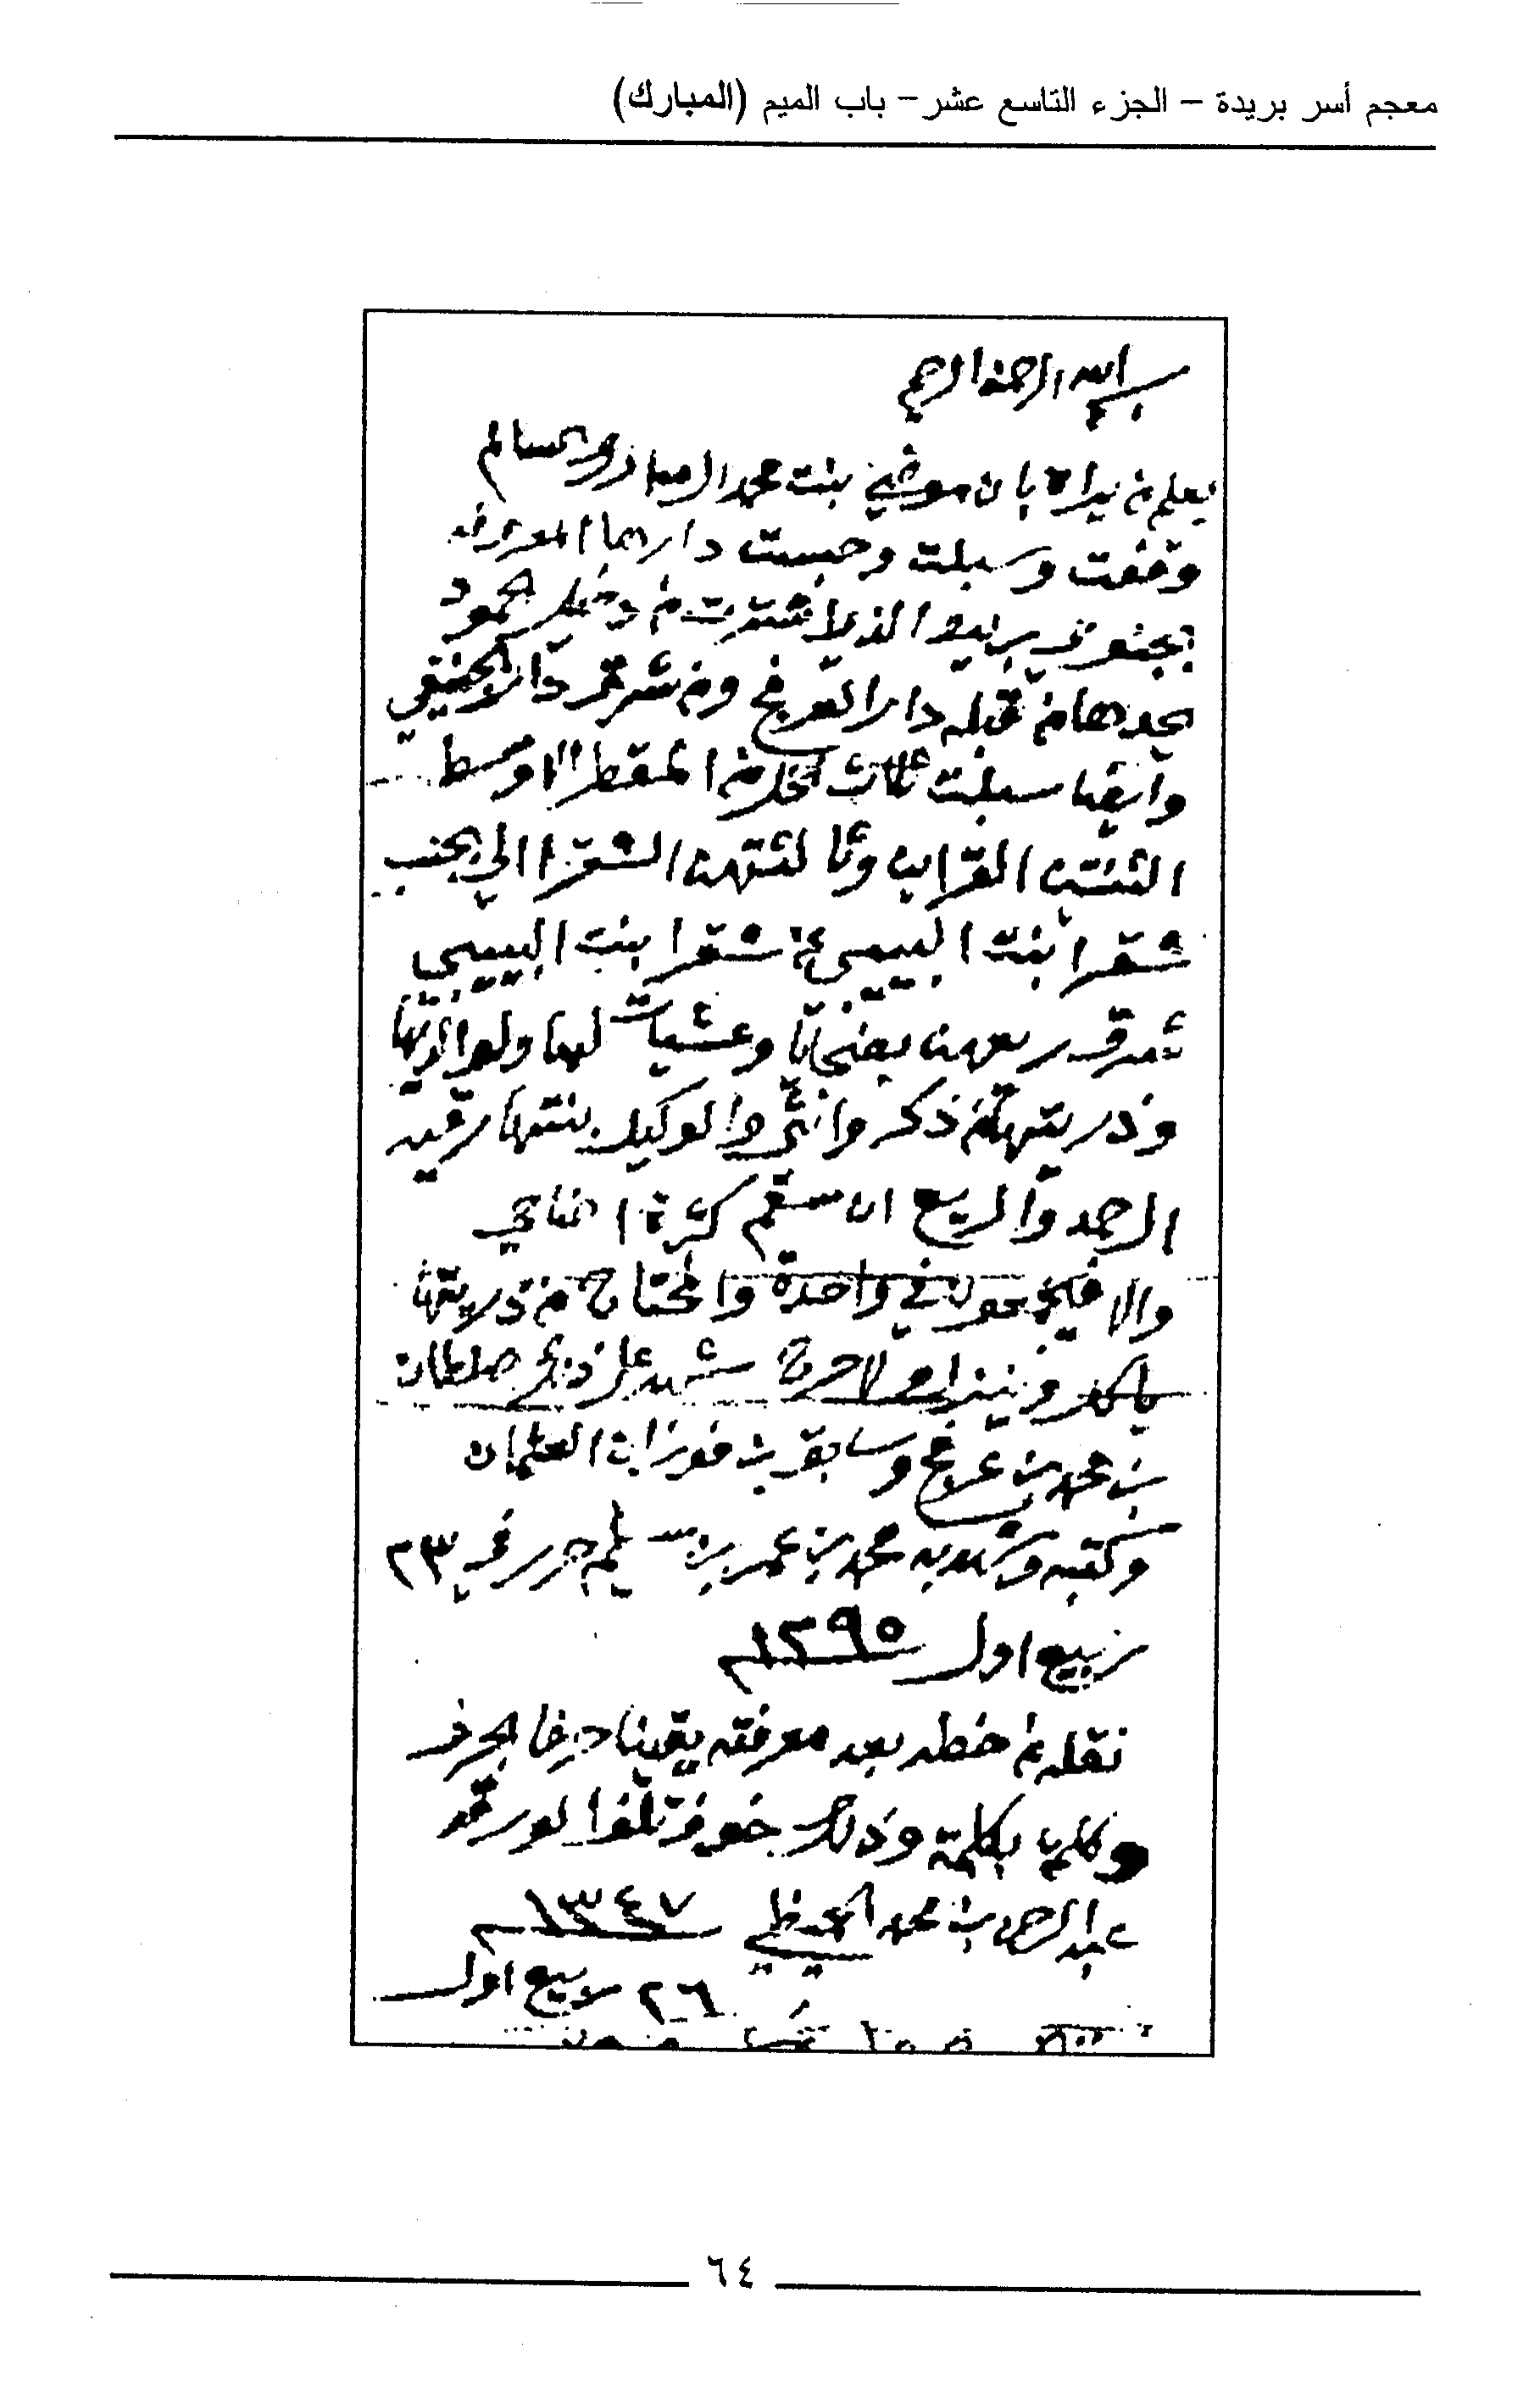 معجم أسر بريدة – الجزء التاسع عشر – باب الميم (المبارك)
بسم الله الرحمن الرحيم
يعلم من يراه بان موضي بنت محمد السالم
وقفت وسبلت وحبست دارها المعروفه
بجنوبي بريده الذي اشترت من دخيل الحمود
يحدها من قبله دار العرفج ومن شرق دار الحنيني
وايضا سبلت ثلاث نخل من المقطر الاوسط
الثنتين القراين وثالثتهن الشقرا الي بجنب
شقرا بنت البييبي عن شقرا بنت البييبي
ثم قدر ريعهن بضحايا وعشيات لها ولوالديها
وذريتها من ذكر وانثى والوكيل بنتها رقيه
الحمد والريع ان ستقم كثرة اضاحي
والا فيجمعون في واحدة والمحتاج من ذريتها
ياكل وينزل ولا حرج شهد على ذلك صلطان
بن محمد بن عرفج وسابق بن فوزان العثمان
وكتبه وشهد به محمد بن عمر بن سليم حرر في ٢٣
ربيع اول ١٢٩٥
نقله من خطه بعد معرفته يقينا حرفا بحرف
وكلمة بكلمة وذلك خوف تلف الورقه
عبدالرحمن بن محمد الحميضي ١٣٤٧
٢٦ ربيع اول
٦٤